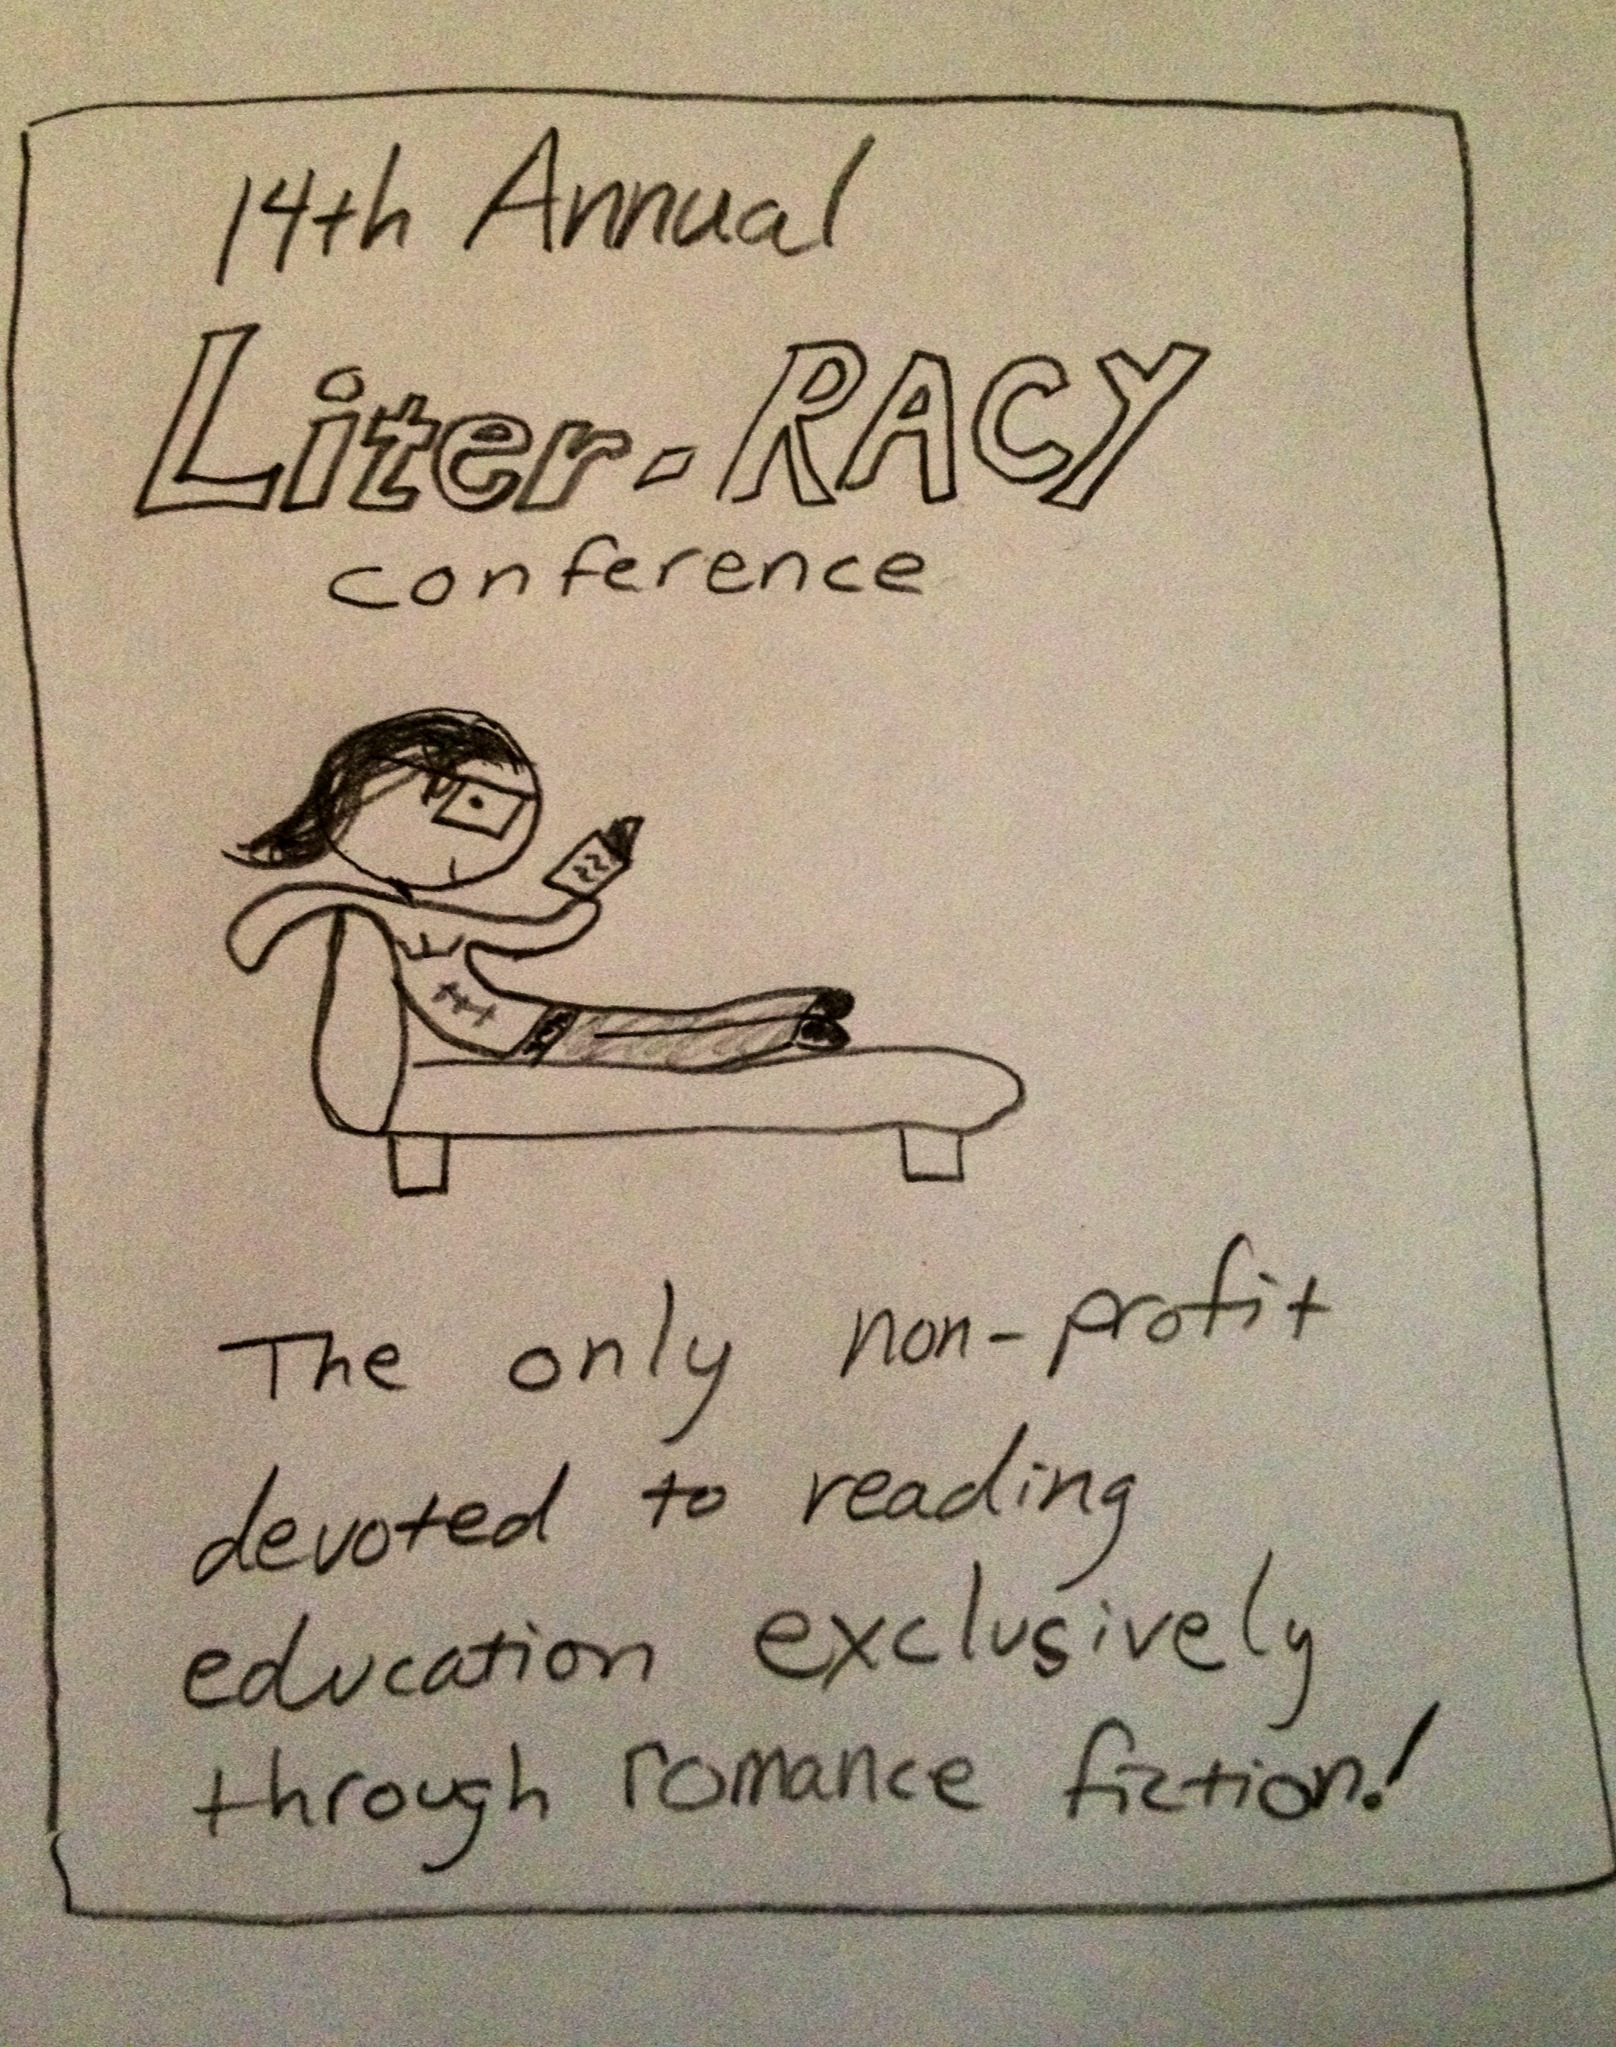 14th Annual
Liter-RACY
conference
The only non-profit
devoted to reading
education exclusively
through romance fiction!